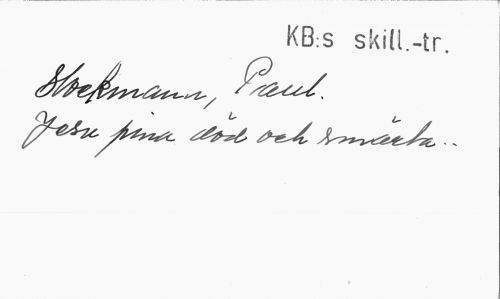 KB:s skill.-tr.
Stockmann, Paul.
Jesu pina död och smärta..